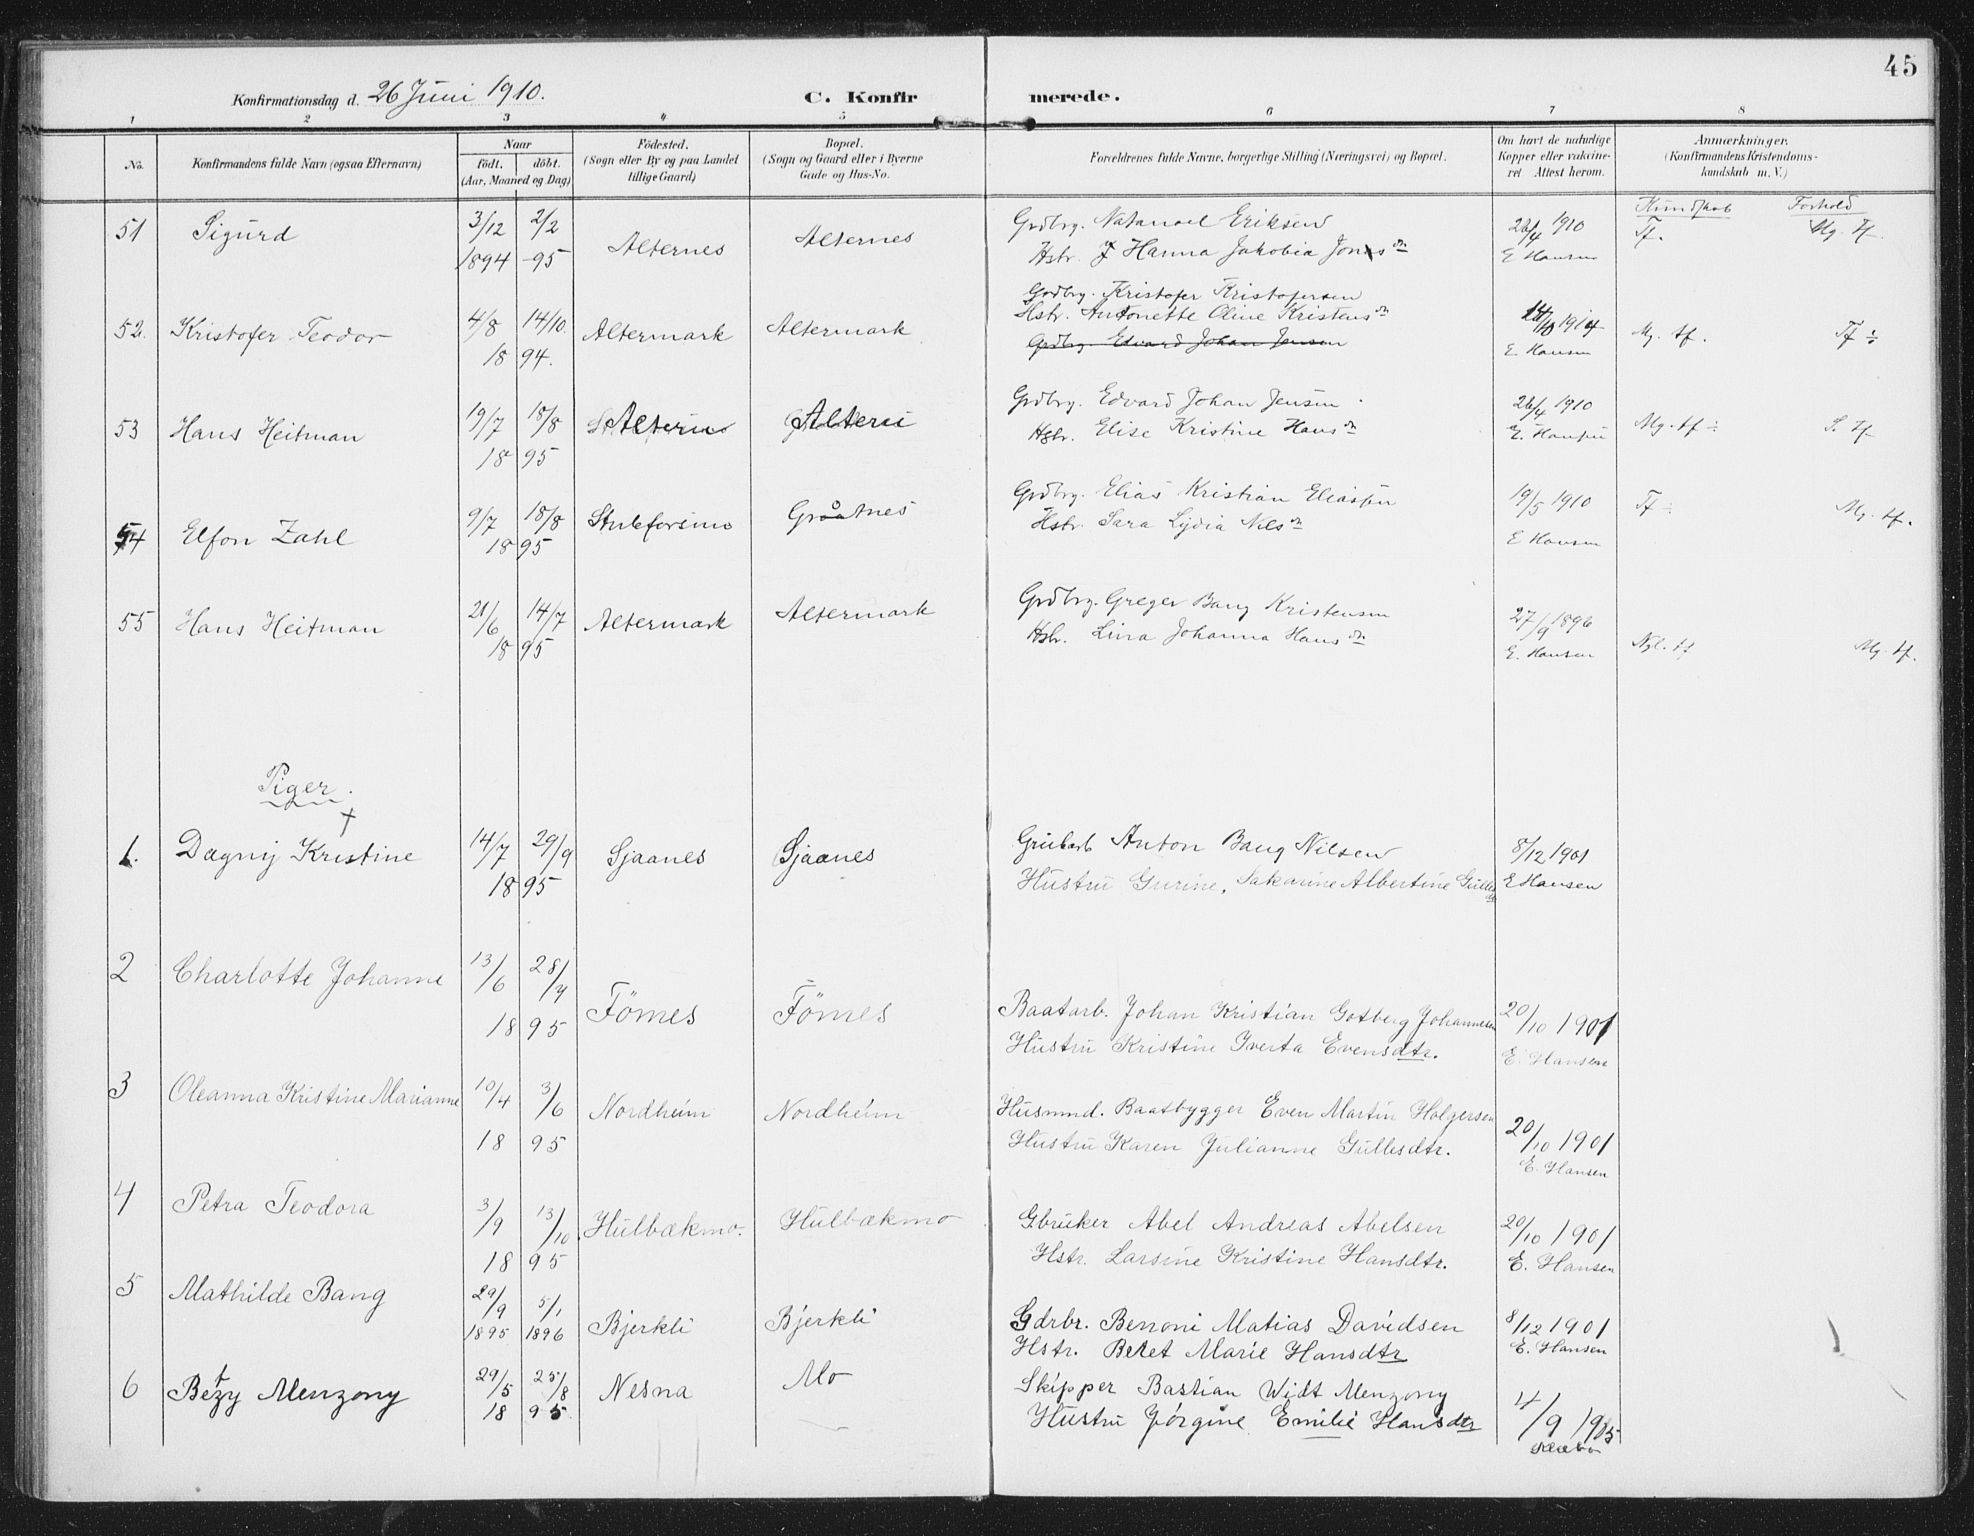 45
Konfirmationsdag d. 26 Juni 1910. C. Konfirmerede.
1 2 3 4 5 6 7 8
No. Konfirmandens fulde Navn (ogsaa Efternavn) Naar født. døbt. (Aar, Maaned og Dag) Fødested. (Sogn eller By og paa Landet tillige Gaard) Bopæl. (Sogn og Gaard eller i Byerne Gade og Hus-No. Forældrenes fulde Navne, borgerlige Stilling (Næringsvei) og Bopæl. Om havt de naturlige Kopper eller vaccineret. Attest herom. Anmærkninger. (Konfirmandens Kristendomskundskab m. V.)
Kundskab Forhold
51 Sigurd 3/12 2/2 Alternes Alternes Grdbrg. Natanael Eriksen 26/4 1910 Tf. Mg. tf.
1894 -95 Hstr. Hanna Jakobia Jons dtr E Hansen
Grdbrg. Kristofer Kristofersen
52. Kristofer Teodor 4/8 14/10 Altermark Altermark Hstr. Antonette Oline Kristens dtr Mg. tf. Tf ÷
18 94. Grdbrg Edvard Johan Jensen E. Hansen
53 Hans Heitman 19/7 18/8 Alteren Alteren Grdbrg. Edvard Johan Jensen 26/4 1910 Mg. tf ÷ S. tf
18 95 Hstr. Elise Kristine Hans dtr E. Hansen
54 Elfon Zahl 9/7 18/8 Stuleforsmo Graatnes Grdbrg. Elias Kristian Eliassen 19/5 1910 Tf ÷ Mg. tf.
18 95 Hstr. Sara Lydia Nils dtr E Hansen
55 Hans Heitman 21/6 14/7 Altermark Altermark Grdbrg. Greger Bang Kristensen 27/9 1896 Ngl. tf Mg. tf.
18 95 Hstr. Lina Johanna Hans dtr E. Hansen
Piger.
1. Dagny Kristine 14/7 29/9 Sjaanes Sjaanes Grubarb Anton Bang Nilsen 8/12 1901
18 95 Hustru Gurine, Sakarine Albertine Gulles dtr E Hansen
2 Charlotte Johanne 13/6 28/7
18 95 Förnes Förnes Baatarb. Johan Kristian Gotberg Johannesen 20/10 1901
Hustru Kristine Iverta Evensdtr. E. Hansen
3 Oleanna Kristine Marianne 10/4 3/6 Nordheim Nordheim Husmnd. Baatbygger Even Martin Holgersen 20/10 1901
18 95 Hustru Karen Julianne Gullesdtr. E. Hansen
4 Petra Teodora 3/9 13/10 Hulbækmo. Hulbækmo Gbruker Abel Andreas Abelsen 20/10 1901
18 95 Hstr. Larsine Kristine Hansdtr. E. Hansen
5 Mathilde Bang 29/9 5/1
1895 1896 Bjerkli Bjerkli Gdrbr. Benoni Matias Davidsen 8/12 1901
Hstr. Beret Marie Hansdtr E. Hansen
6 Betzy Menzony 29/5 25/8 Nesna Mo Skipper Bastian Widt Menzony 4/9 1905
18 95 Hustru Jørgine Emilie Hansdtr